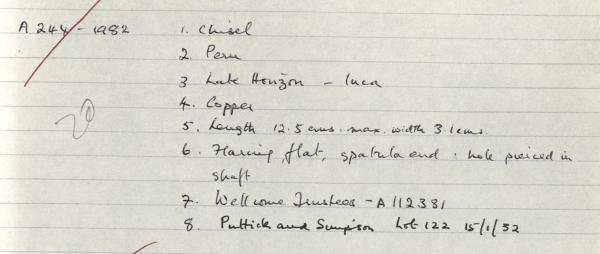 A 244 - 1982 1. Chisel
2. Peru
3 Late Horizon - Inca
4. Copper
5. Length 12.5 cms. max. width 3.1cms.
20
6. Flaring, flat, spatula end. hole pierced in
shaft
7. Wellcome Trustees - A 112381
8. Puttick and Simpson Lot 122 15/1/32